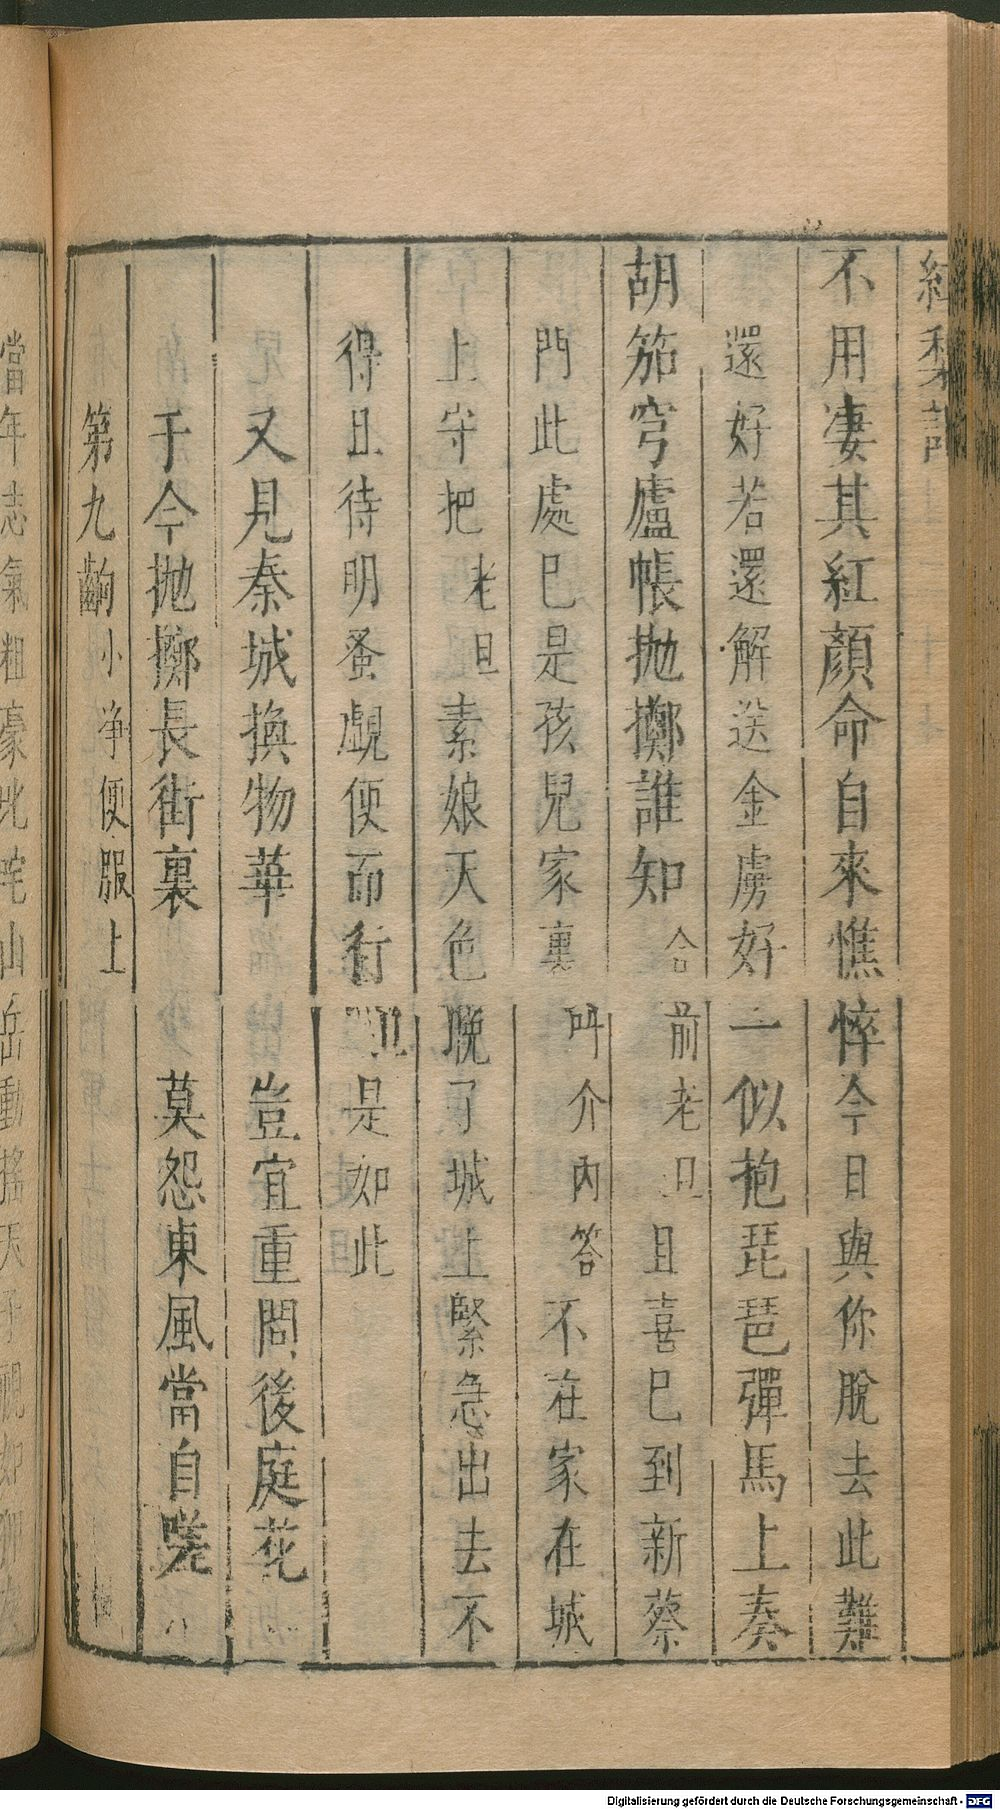 紅梨記
不用凄其紅顏命自來憔悴今日與你脫去此難
還好若還解送金虜好一似抱琵琶彈馬上奏
胡笳穹廬帳拋擲誰知合前老旦且喜已到新蔡
門此處已是孩兒家裏叫介內答不在家在城
上守把老旦素娘天色晚了城上緊急出去不
得且待明蚤覷便而行旦是如此
又見秦城換物華 豈宜重問後庭花
于今拋擲長街裏 莫怨東風當自嗟
第九齣小净便服上
當年志氣粗豪叱咤山岳動搖天子
Digitalisierung gefördert durch die Deutsche Forschungsgemeinschaft - DFG